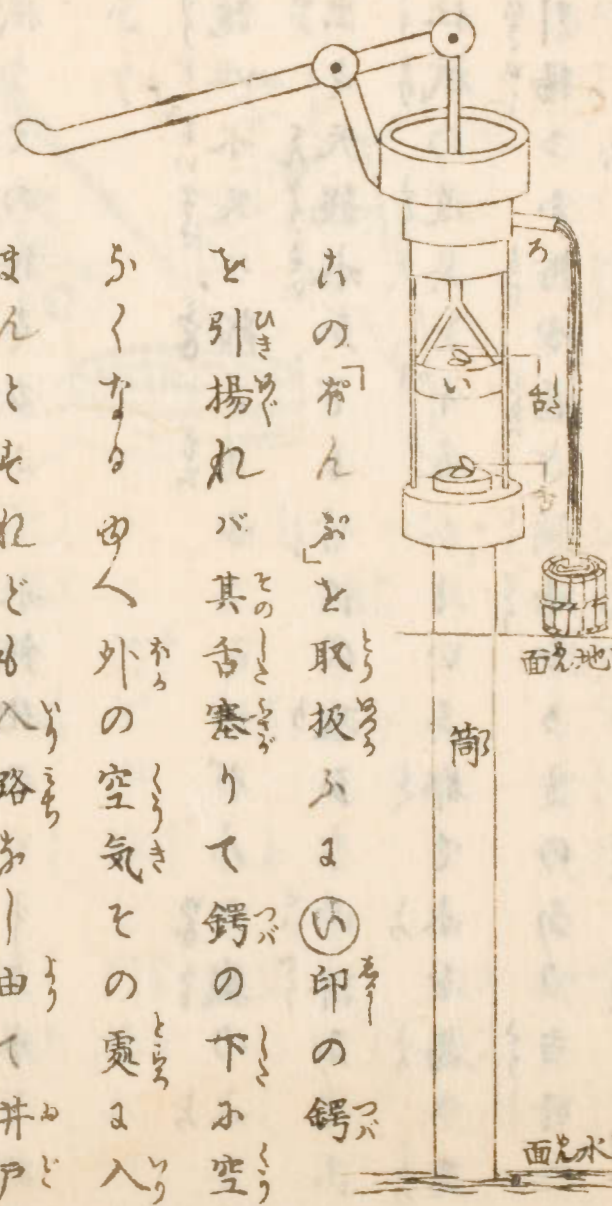 ろ
舌
い
舌
地面
筒
水面
この「ぽんぷ」を取扱ふに㋑印の鍔
を引揚れバ其舌塞りて鍔の下に空
なくなる由へ外の空気その處に入
まんとすれども入路なし由て井戸